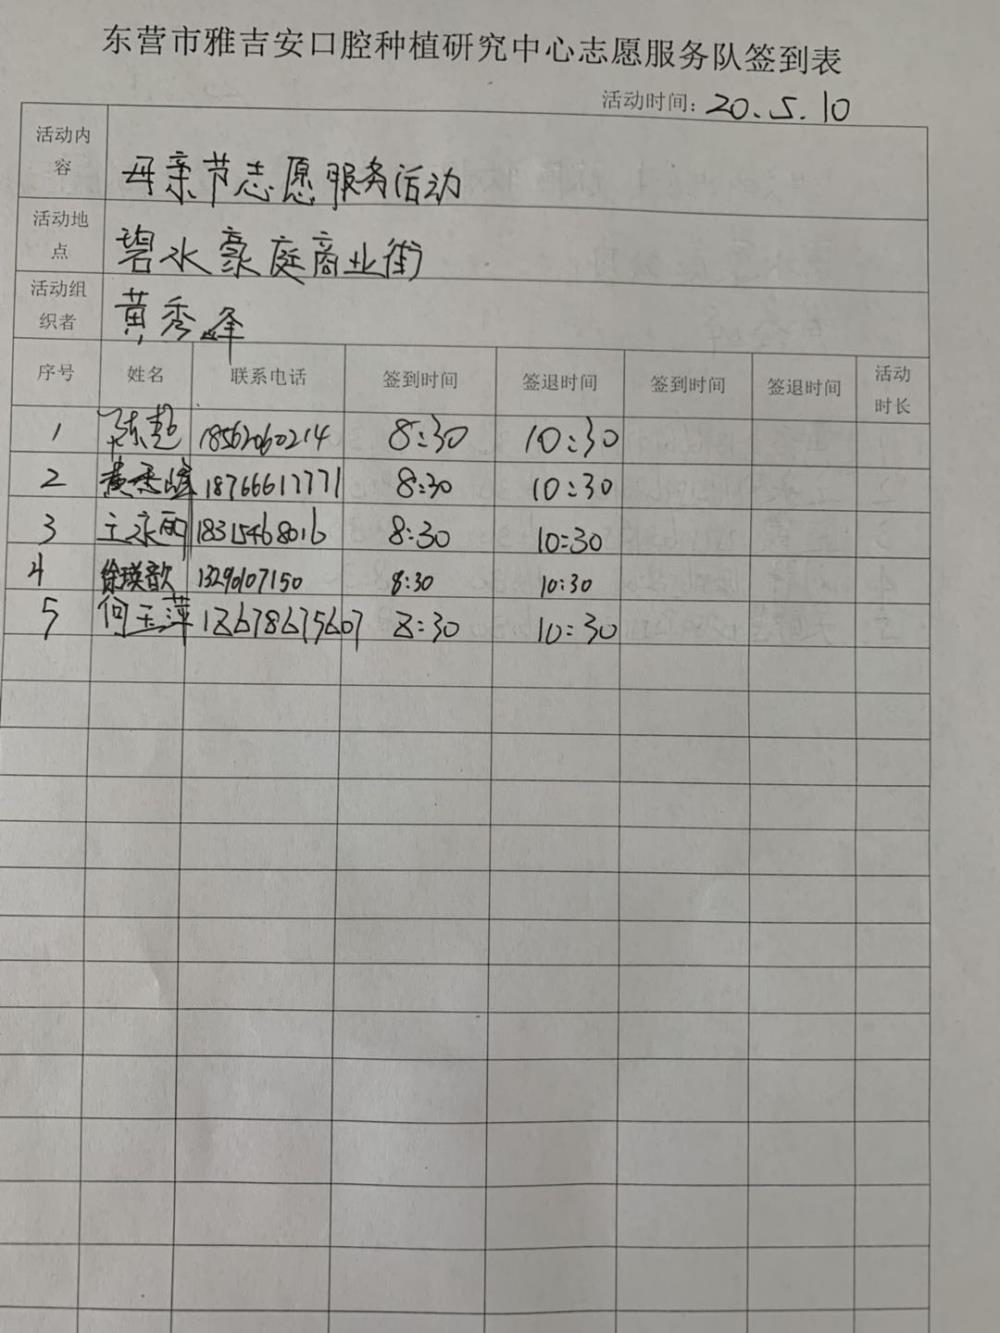 东营市雅吉安口腔种植研究中心志愿服务队签到表
活动时间: 20.5.10
活动内容 母亲节志愿服务活动
活动地点 碧水豪庭商业街
活动组织者 黄秀峰
序号 姓名 联系电话 签到时间 签退时间 签到时间 签退时间 活动时长
1 陈超 18562060214 8:30 10:30
2 黄秀峰 18766617771 8:30 10:30
3 王永丽 18315468016 8:30 10:30
4 徐瑛歆 13290107150 8:30 10:30
5 何玉萍 12678675607 8:30 10:30